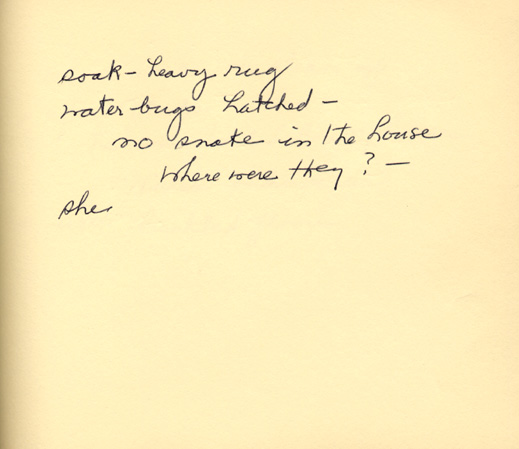 soak - heavy rug
water bugs hatched -
no snake in the house
where were they? -
she